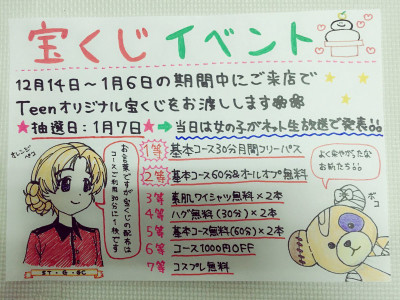 宝くじイベント
12月14日～1月6日の期間中にご来店で
Teenオリジナル宝くじをお渡しします
★抽選日:1月7日★→当日は女の子がネット生放送で発表
オレンジペコ
お名言ですが宝くじの配布は
コースご利用30分に1枚です
ST・G・GC
1等 基本コース30分月間フリーパス
2等 基本コース60分&オールオプ無料
3等 素肌ワイシャツ無料×2本
4等 ハグ無料(30分)×2本
5等 基本コース無料(60分)×2本
6等 コース1000円OFF
7等 コスプレ無料
よく来やがったな
おめぇたち
ボコ